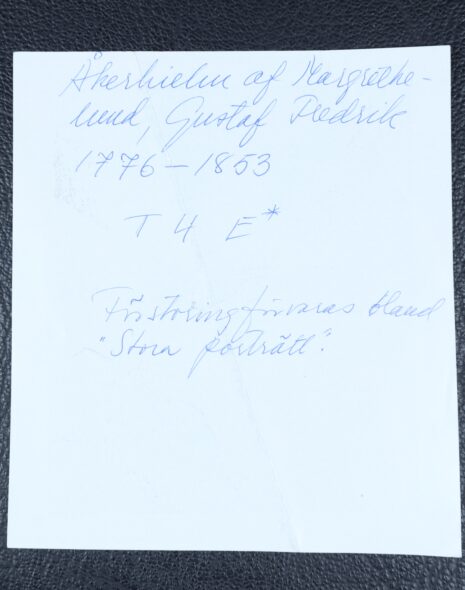 Åkerhielm af Margrethe-
lund, Gustaf Fredrik
1776-1853
T 4 E*
Förstoring förvaras bland
"Stora porträtt".